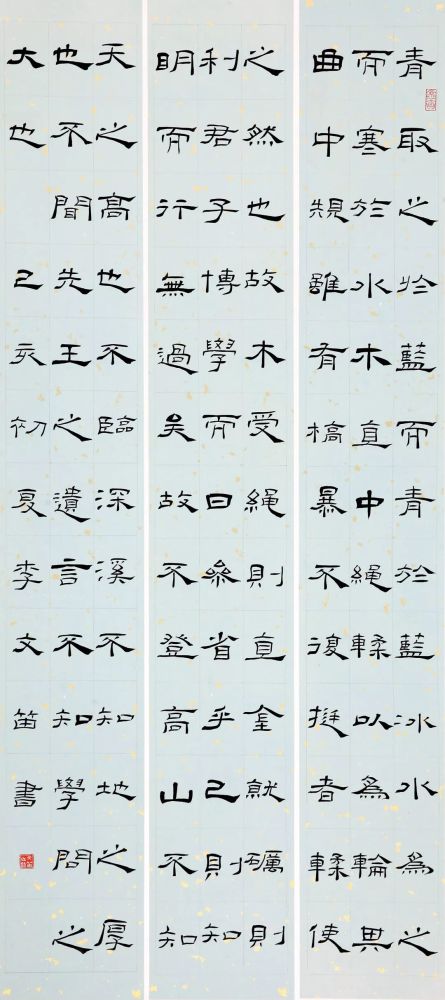 青取之於藍而青於藍冰水為之
而寒於水木直中繩輮以為輪其
曲中規雖有槁暴不復挺者輮使
之然也故木受繩則直金就礪則
利君子博學而日參省乎己則知
明而行無過矣故不登高山不知
天之高也不臨深溪不知地之厚
也不聞先王之遺言不知學問之
大也
己亥初夏李文笛書